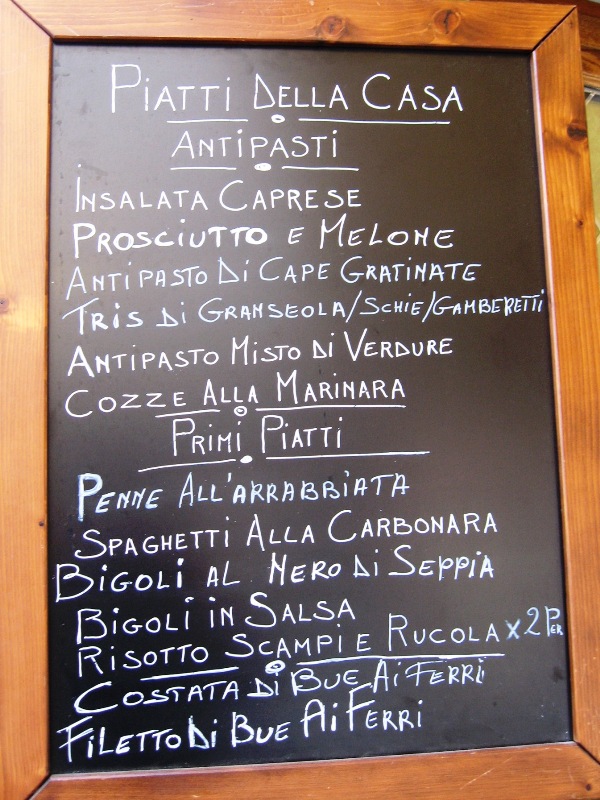 PIATTI DELLA CASA
ANTIPASTI
INSALATA CAPRESE
PROSCIUTTO E MELONE
ANTIPASTO Di CAPE GRATINATE
TRIS Di GRANSEOLA/SCHIE/GAMBERETTi
ANTIPASTO MISTO Di VERDURE
COZZE ALLA MARINARA
PRIMI PIATTI
PENNE ALL'ARRABBIATA
SPAGHETTI ALLA CARBONARA
BIGOLi AL NERO Di SEPPIA
BIGOLi iN SALSA
RISOTTO SCAMPi E RUCOLA x 2 PER
COSTATA Di BUE Ai FERRi
FILETTO Di BUE Ai FERRi